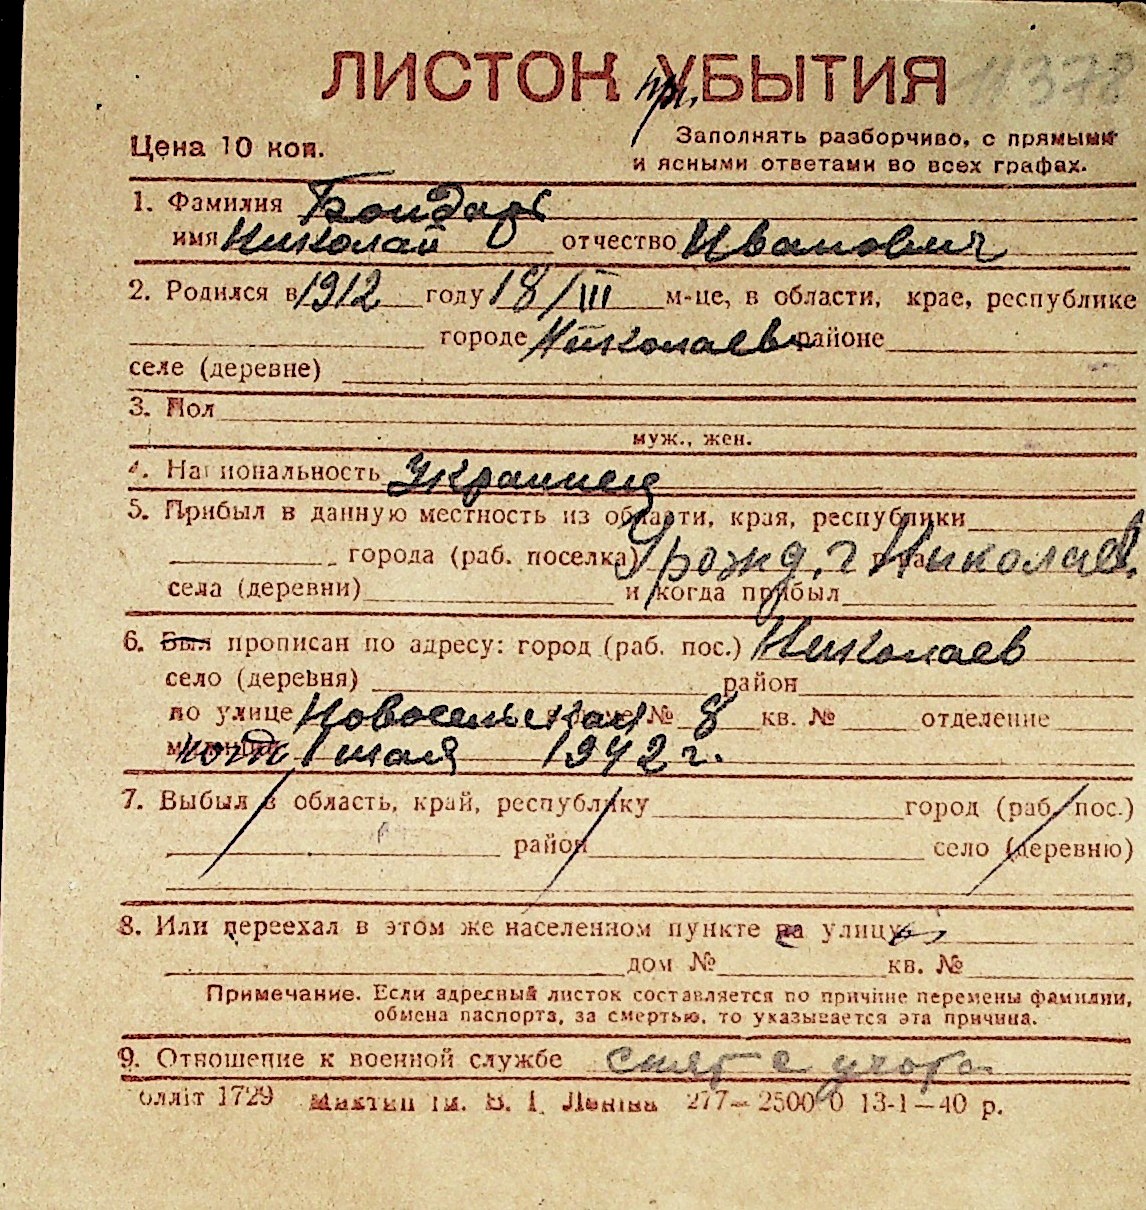 ЛИСТОК пр. УБЫТИЯ 11378
Цена 10 коп.
Заполнять разборчиво, с прямыми
и ясными ответами во всех графах.
1. Фамилия Бондарь
имя Николай отчество Иванович
2. Родился в 1912 году 18/III м-це, в области, крае, республике
городе Николаев районе
селе (деревне)
3. Пол
муж., жен.
4. Национальность Украинец
5. Прибыл в данную местность из области, края, республики
города (раб. поселка) Урожд. г Николаев.
села (деревни) и когда прибыл
6. Был прописан по адресу: город (раб. пос.) Николаев
село (деревня) район
по улице Новосельская № 8 кв. № отделение
1 мая 1942 г.
7. Выбыл в область, край, республику город (раб. пос.)
район село (деревню)
8. Или переехал в этом же населенном пункте на улицу
дом № кв. №
Примечание. Если адресный листок составляется по причине перемены фамилии,
обмена паспорта, за смертью, то указывается эта причина.
9. Отношение к военной службе снят с учота
олліт 1729 ім. В. І. Леніна 277—25000 13-1—40 р.